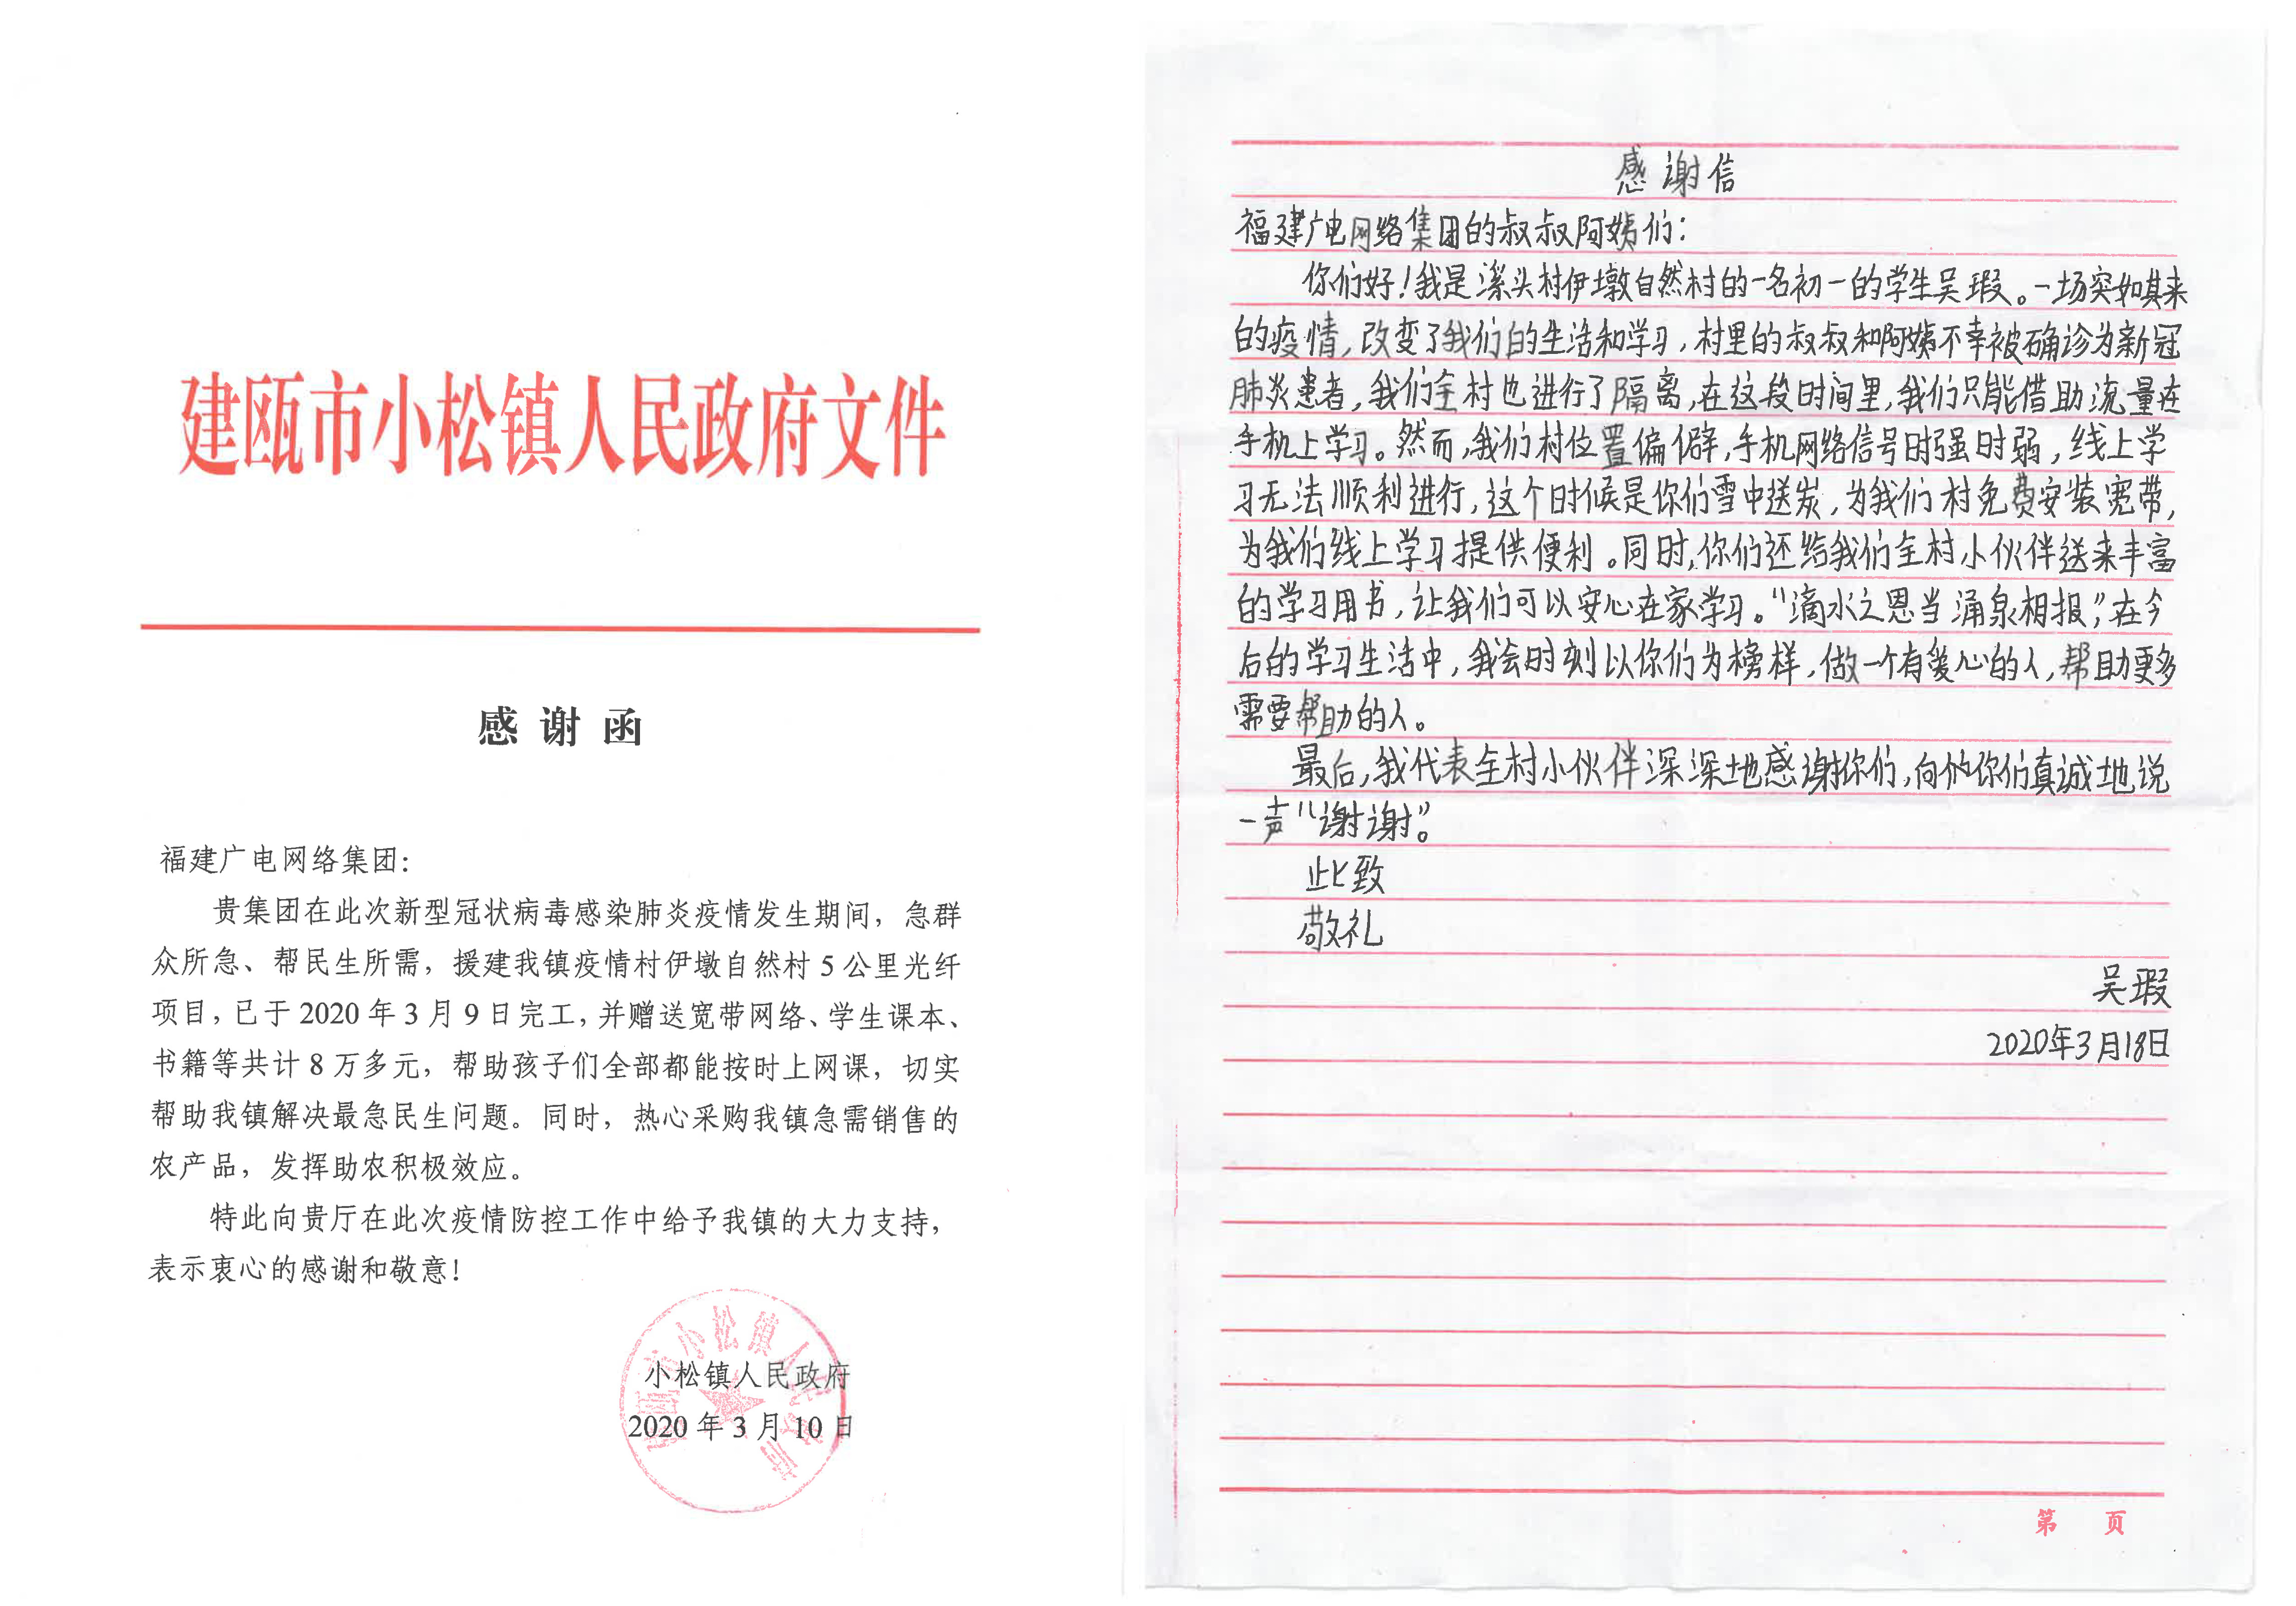 建瓯市小松镇人民政府文件
感谢函
福建广电网络集团：
贵集团在此次新型冠状病毒感染肺炎疫情发生期间，急群
众所急、帮民生所需，援建我镇疫情村伊墩自然村 5 公里光纤
项目，已于 2020 年 3 月 9 日完工，并赠送宽带网络、学生课本、
书籍等共计 8 万多元，帮助孩子们全部都能按时上网课，切实
帮助我镇解决最急民生问题。同时，热心采购我镇急需销售的
农产品，发挥助农积极效应。
特此向贵厅在此次疫情防控工作中给予我镇的大力支持，
表示衷心的感谢和敬意！
建瓯市小松镇人民政府
小松镇人民政府
2020 年 3 月 10 日
感谢信
福建广电网络集团的叔叔阿姨们：
你们好！我是溪头村伊墩自然村的一名初一的学生吴瑕。一场突如其来
的疫情，改变了我们的生活和学习，村里的叔叔和阿姨不幸被确诊为新冠
肺炎患者，我们全村也进行了隔离，在这段时间里，我们只能借助流量在
手机上学习。然而，我们村位置偏僻，手机网络信号时强时弱，线上学
习无法顺利进行，这个时候是你们雪中送炭，为我们村免费安装宽带，
为我们线上学习提供便利。同时，你们还给我们全村小伙伴送来丰富
的学习用书，让我们可以安心在家学习。“滴水之恩当涌泉相报”，在今
后的学习生活中，我会时刻以你们为榜样，做一个有爱心的人，帮助更多
需要帮助的人。
最后，我代表全村小伙伴深深地感谢你们，向你们真诚地说
一声“谢谢”。
此致
敬礼
吴瑕
2020年3月18日
第 页